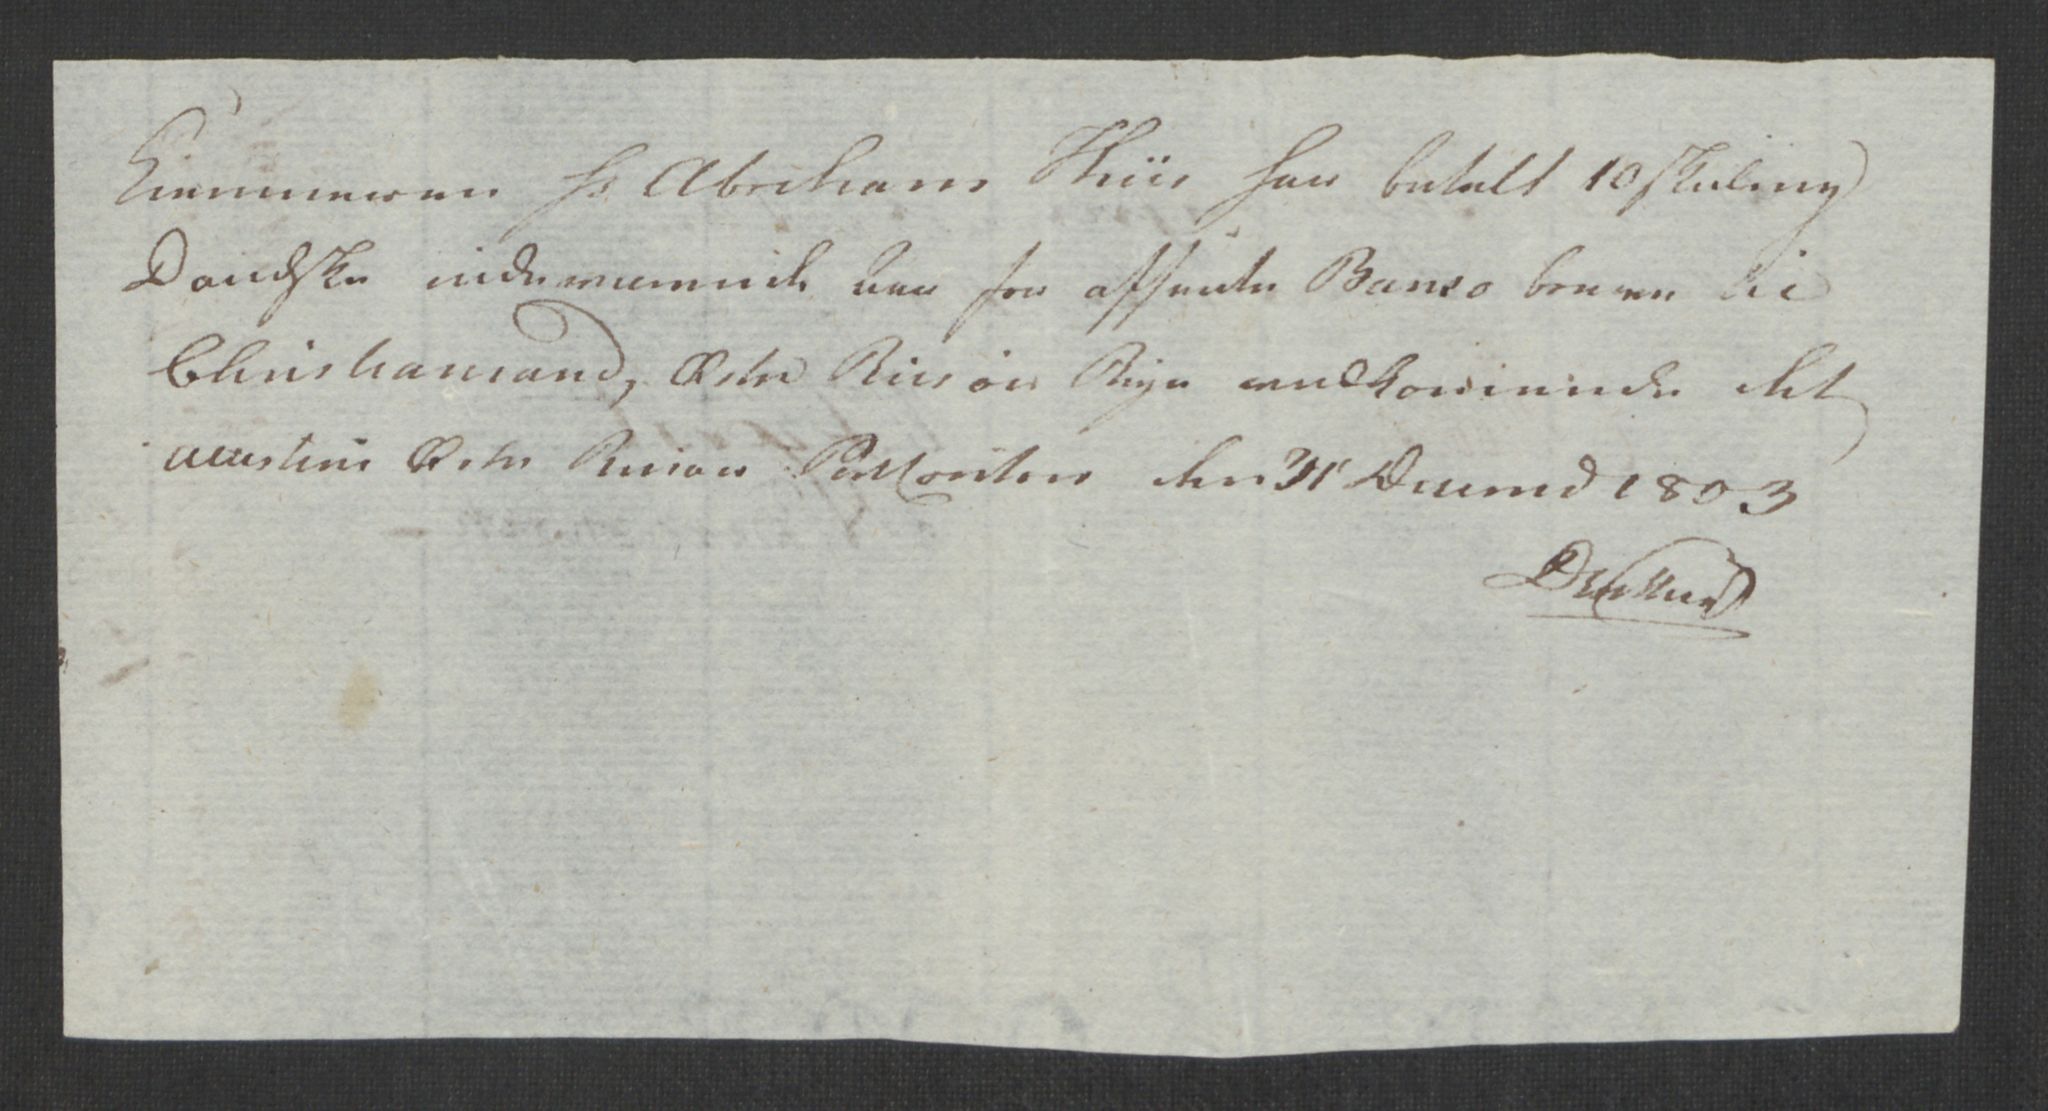 Kiemneren Hr Abraham Thiis har betalt 10 skieling
Dandske indeværende aar for afsendte Banco breve til
Christiansand, Østre Riisöer Bye vedkommende det
attesteres Østre Riisöer Postcontoir den 31 Decembr 1803